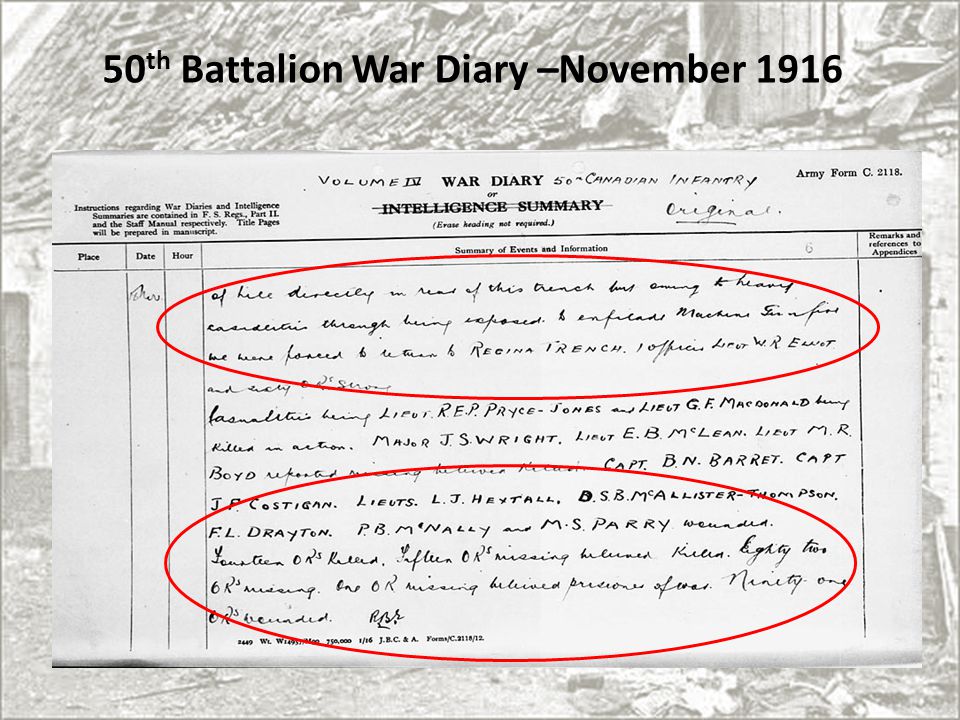 50th Battalion War Diary –November 1916
Army Form C. 2118.
VOLUME IV WAR DIARY 50th CANADIAN INFANTRY
or
INTELLIGENCE SUMMARY
Original.
(Erase heading not required.)
Instructions regarding War Diaries and Intelligence
Summaries are contained in F. S. Regs., Part II.
and the Staff Manual respectively. Title Pages
will be prepared in manuscript.
Place Date Hour Summary of Events and Information 6 Remarks and
references to
Appendices
Nov. of hill directly in rear of this trench but owing to heavy
casualties through being exposed to enfilade Machine Gun fire
we were forced to return to REGINA TRENCH. 1 officer LIEUT W.R ELLIOT
and sixty ORs strong
Casualties being LIEUT. R.E.P. PRYCE-JONES and LIEUT G.F. MACDONALD being
killed in action. MAJOR J.S. WRIGHT. LIEUT E.B. McLEAN. LIEUT M.R.
BOYD reported missing believed killed. CAPT. B.N. BARRET. CAPT
J.P. COSTIGAN. LIEUTS. L.J. HEXTALL, D.S.B. McALLISTER-THOMPSON.
F.L. DRAYTON. P.B. McNALLY and M.S. PARRY wounded.
Fourteen ORs killed, Fifteen ORs missing believed killed. Eighty two
ORs missing. One OR missing believed prisoner of war. Ninety one
ORs wounded.
2449 Wt. W14957/M90 750,000 1/16 J.B.C. & A. Forms/C.2118/12.